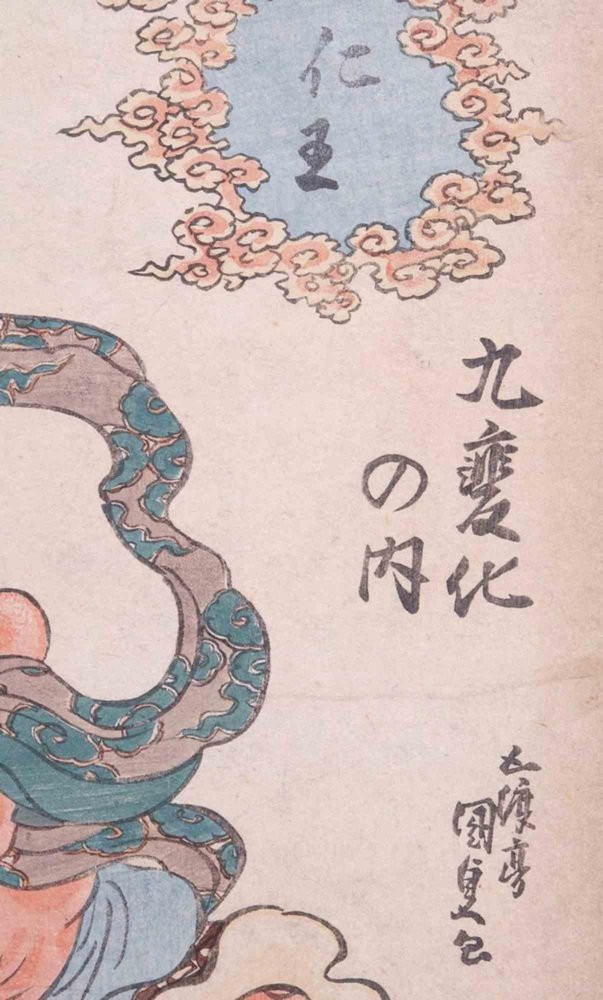 仁王
九変化
の内
五渡亭
国貞画